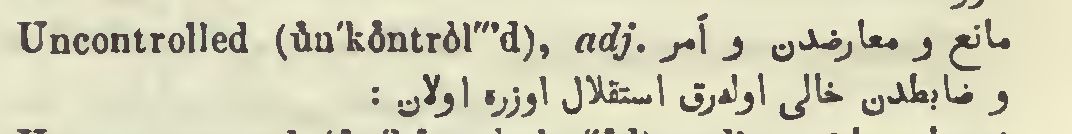 Uncontrolled (ŭn′kŏntrōl‴’d), adj. مانع و معارضدن و آمر
و ضابطدن خالی اولەرق استقلال اوزره اولان :